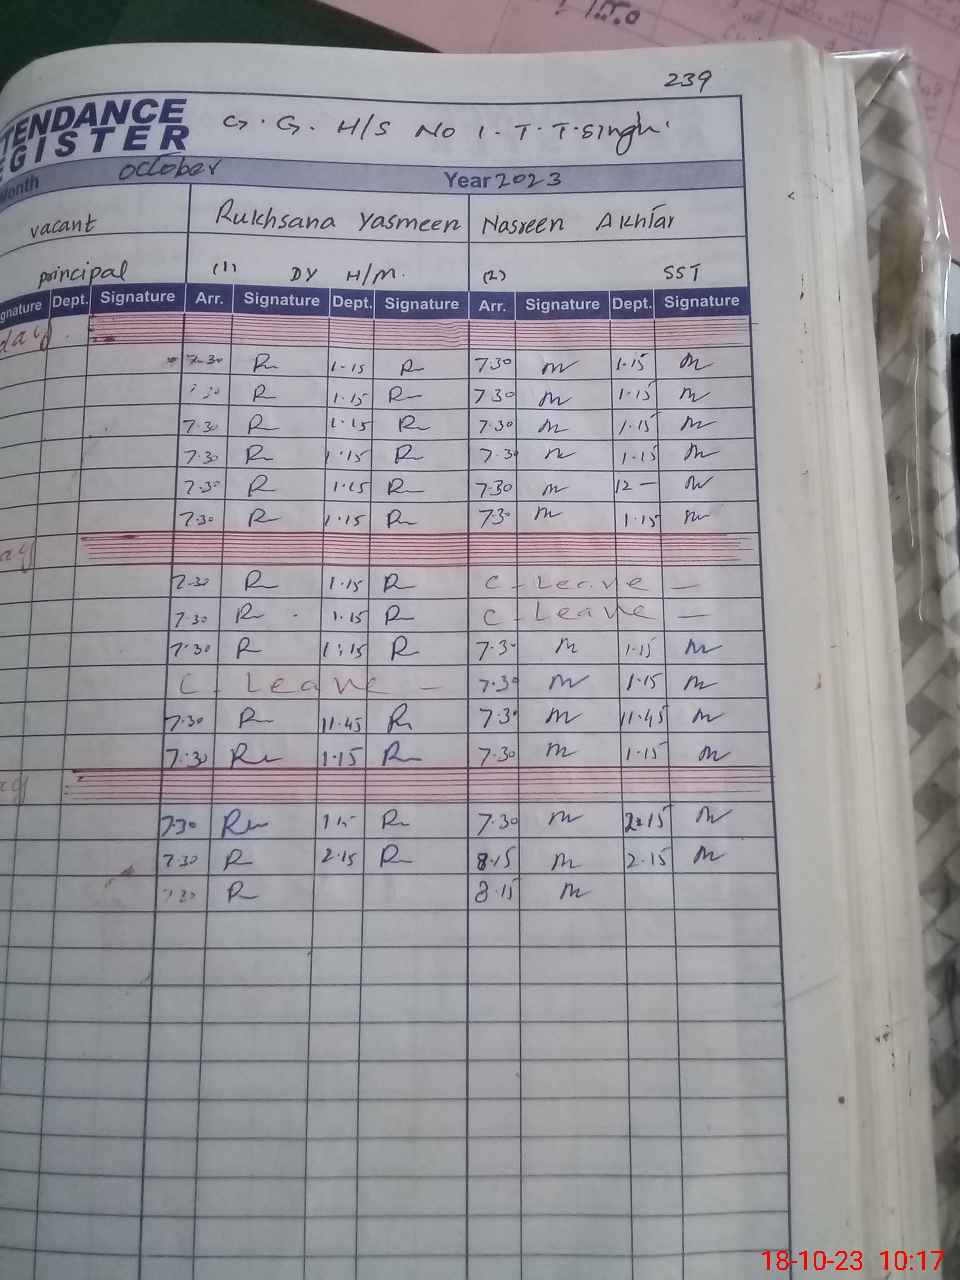 239
TENDANCE
EGISTER
G.G. H/S No 1. T.T.Singh
Month October Year 2023
vacant Rukhsana Yasmeen Nasreen Akhtar
principal (1) DY H/M. (2) SST
gnature Dept. Signature Arr. Signature Dept. Signature Arr. Signature Dept. Signature
day
7-30 R 1-15 R 7.30 m 1.15 m
7 30 R 1.15 R 7 30 m 1.15 m
7.30 R 1.15 R 7.30 m 1.15 m
7.30 R 1.15 R 7.3 m 1.15 m
7.30 R 1.15 R 7.30 m 12 — m
7.30 R 1.15 R 7.30 m 1.15 m
ay
7.30 R 1.15 R C - Leave —
7.30 R 1.15 R C - Leave —
7.30 R 1.15 R 7.3 m 1.15 m
C. Leave — 7.3 m 1.15 m
7.30 R 11.45 R 7.3 m 11.45 m
7.30 R 1.15 R 7.30 m 1.15 m
ay
7.30 R R 7.30 m 2.15 m
7.30 R 2.15 R 8.15 m 2.15 m
7.30 R 8.15 m
18-10-23 10:17